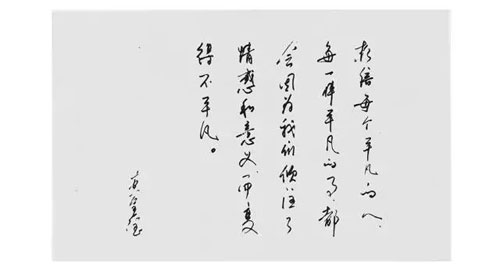 相信每个平凡的人、
每一件平凡的事，都
会因为我们倾注了
情感和意义，而变
得不平凡。